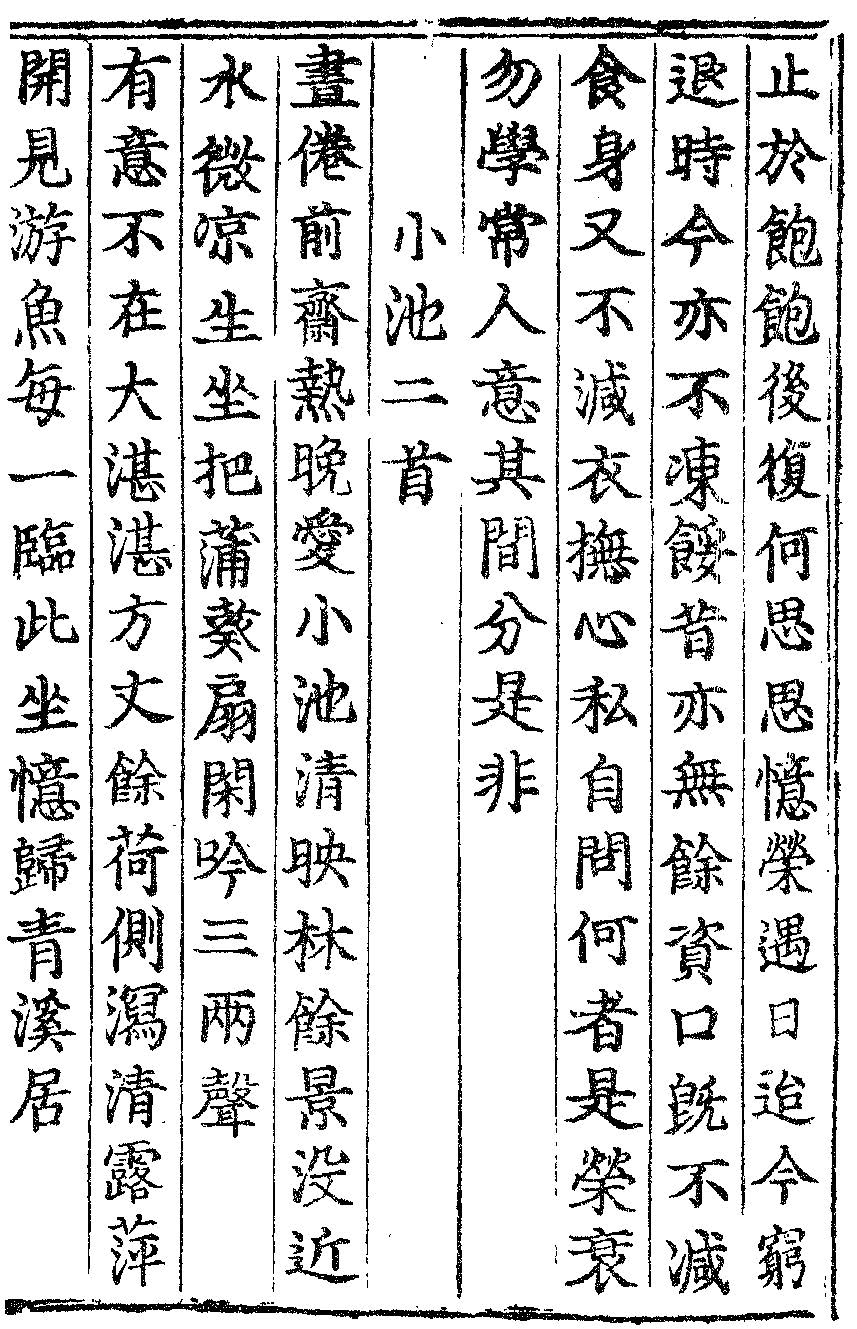 止於飽飽後復何思思憶榮遇日迨今窮
退時今亦不凍餒昔亦無餘資口旣不減
食身又不減衣撫心私自問何者是榮衰
勿學常人意其間分是非
小池二首
晝倦前齋熱晚愛小池清映林餘景没近
水微凉生坐把蒲葵扇閑吟三兩聲
有意不在大湛湛方丈餘荷側瀉清露萍
開見游魚每一臨此坐憶歸青溪居